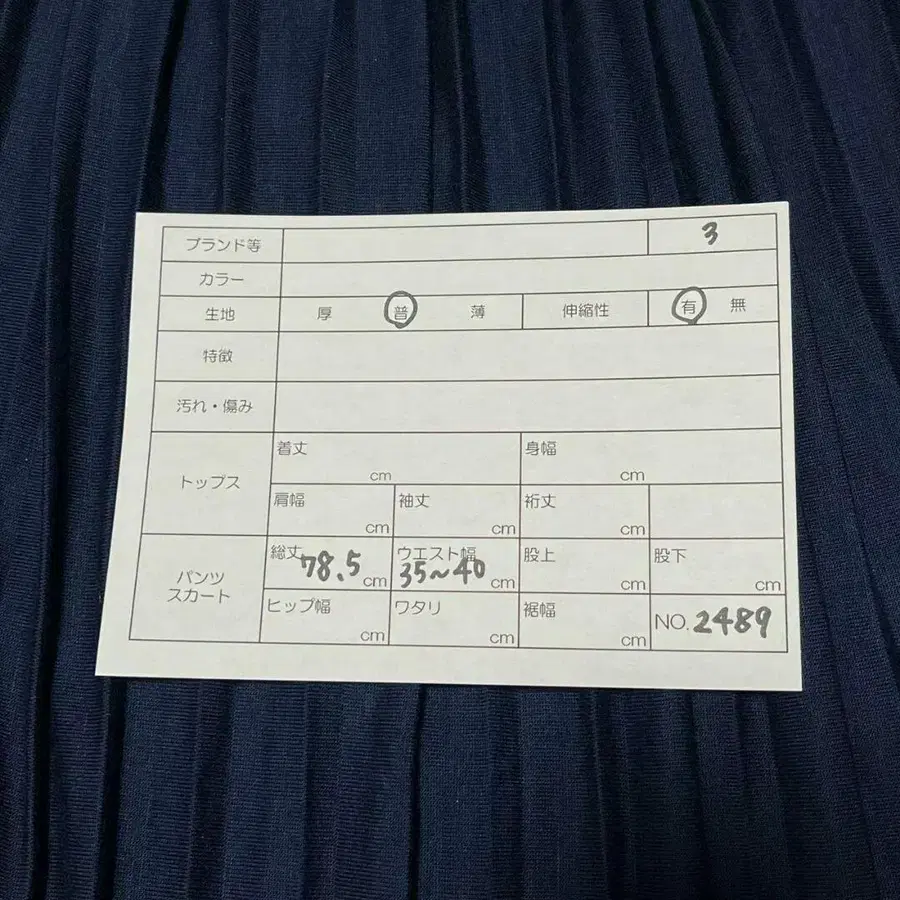 ブランド等 3
カラー
生地 厚 普 薄 伸縮性 有 無
特徴
汚れ・傷み
トップス
着丈 cm 身幅 cm
肩幅 cm 袖丈 cm 裄丈 cm
パンツ
スカート
総丈 78.5 cm ウエスト幅 35~40 cm 股上 cm 股下 cm
ヒップ幅 cm ワタリ cm 裾幅 cm NO. 2489